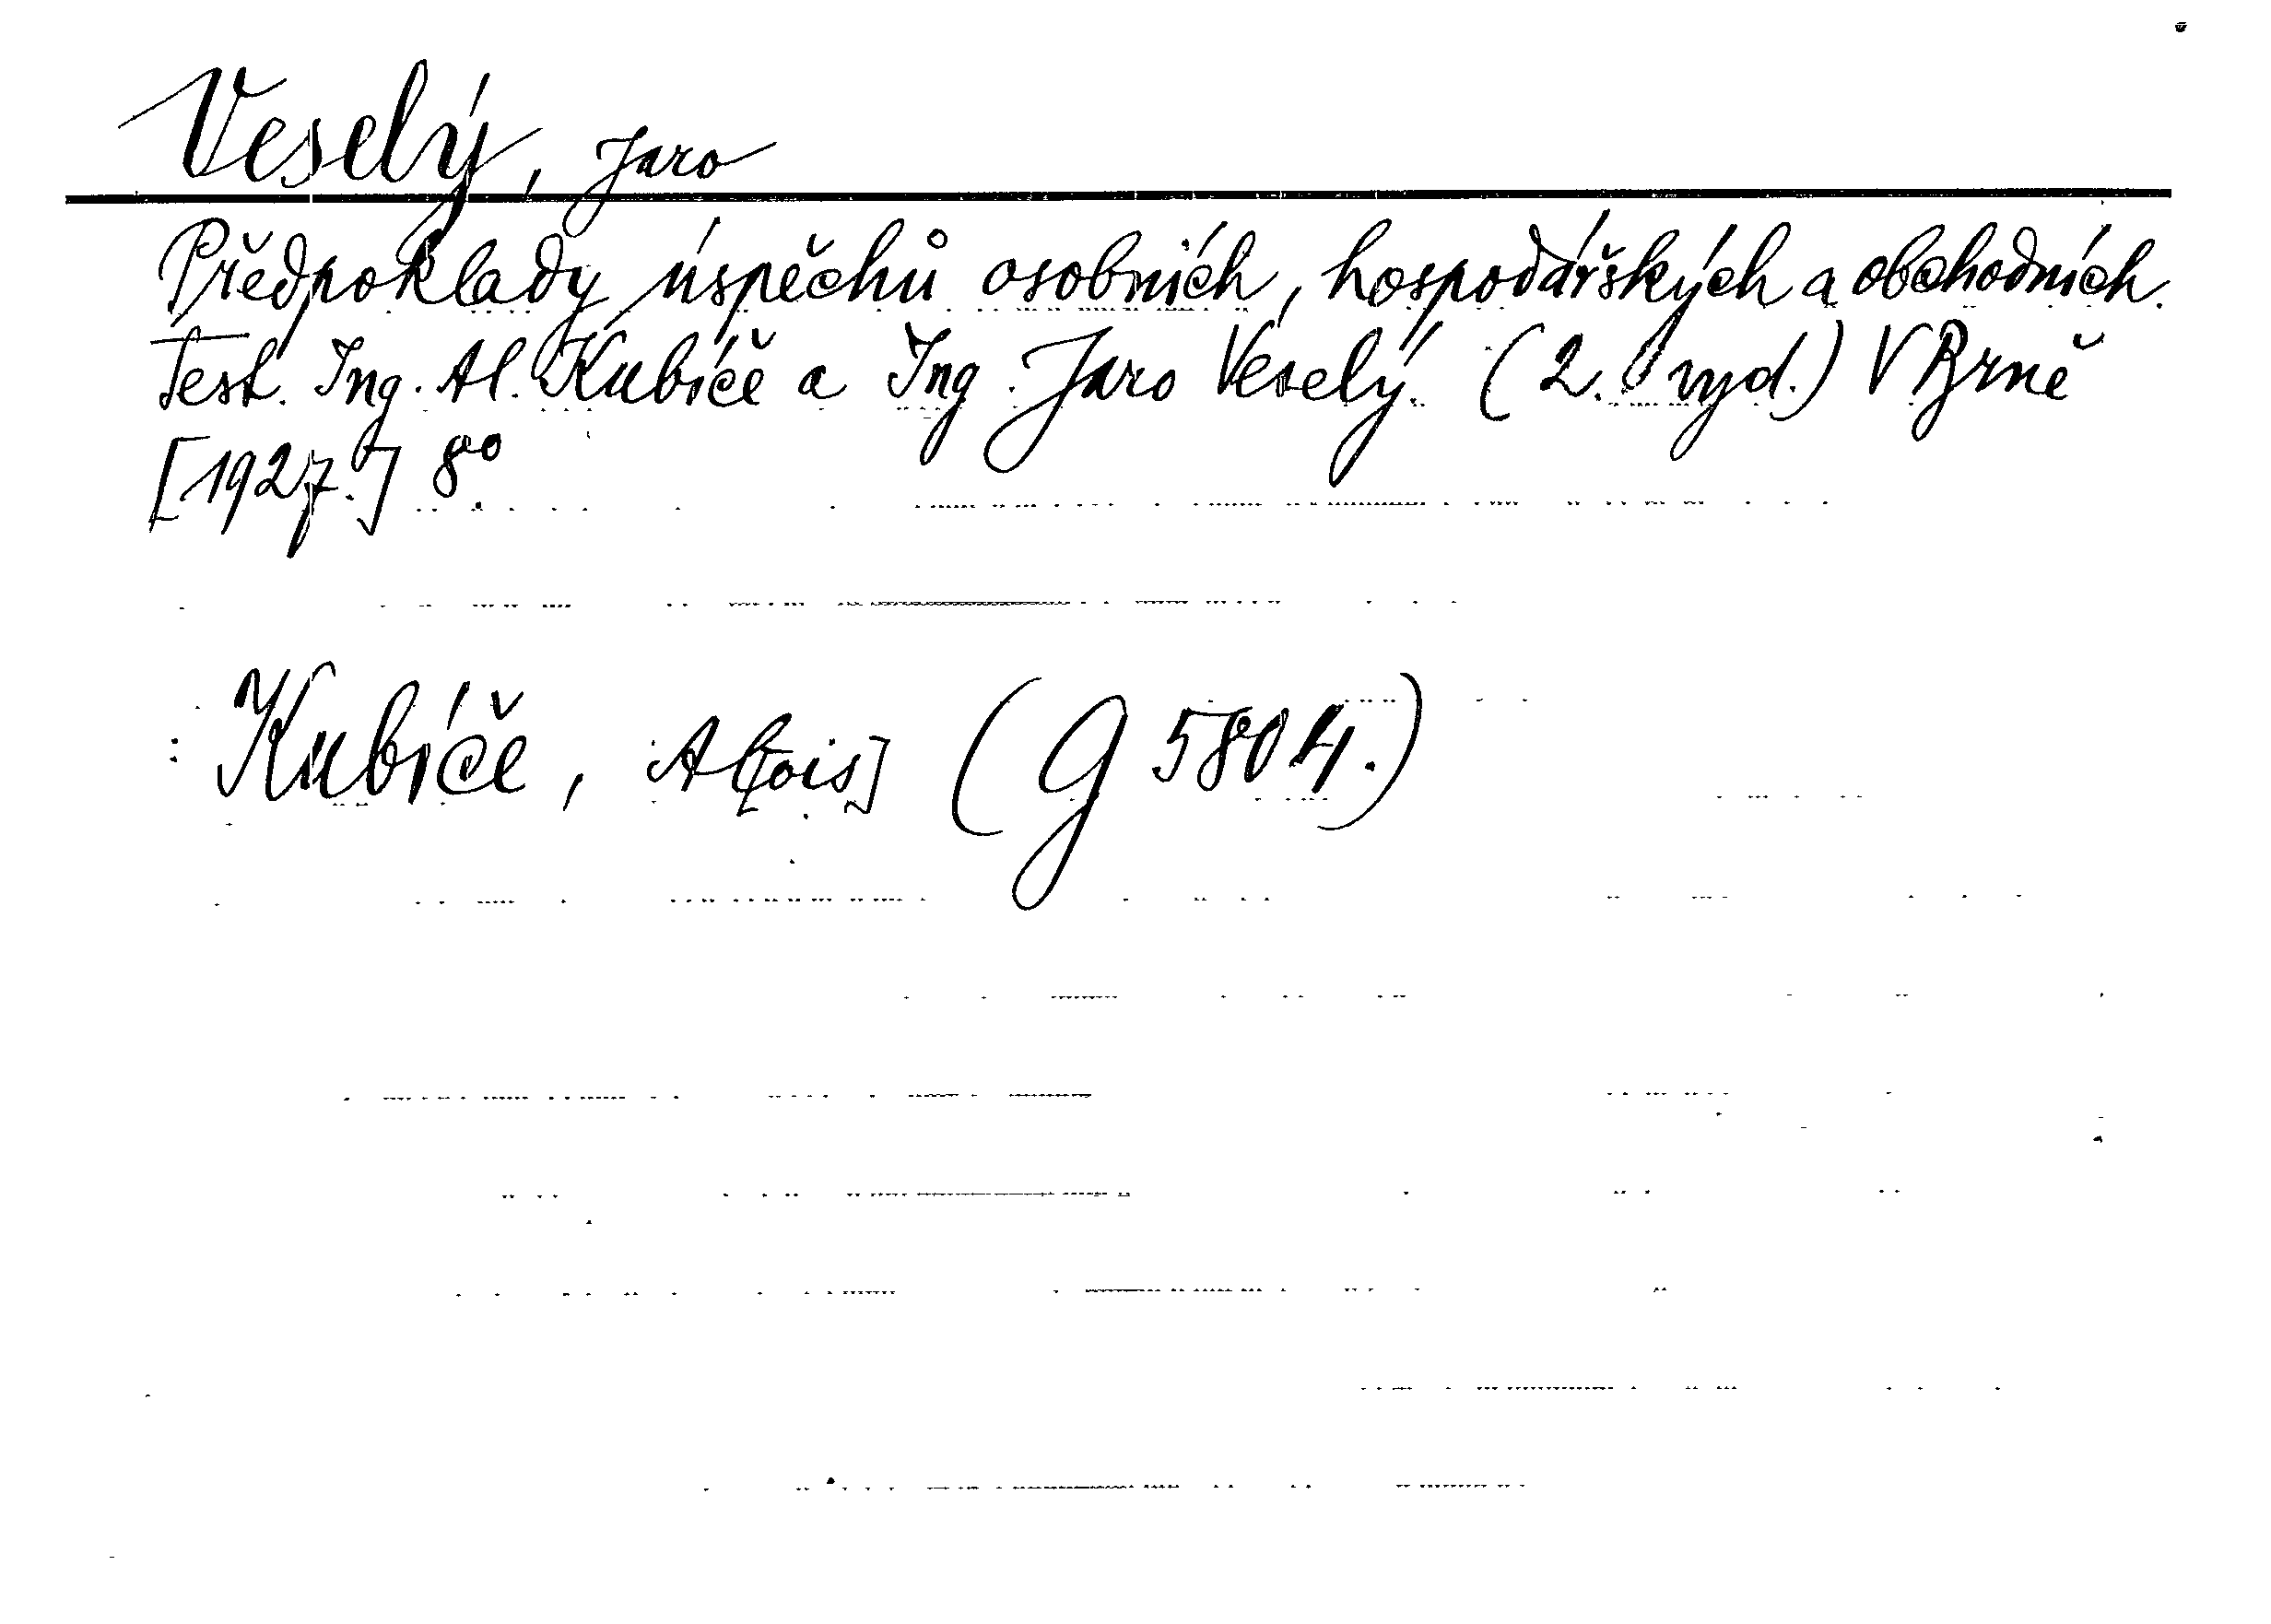 Veselý, Jaro
Předpoklady úspěchů osobních, hospodářských a obchodních.
Test. Ing. Al. Kubíče a Ing. Jaro Veselý. (2. vyd.) V Brně
[1927.] 8°.
Kubíče, Al[ois] (G 5804.)